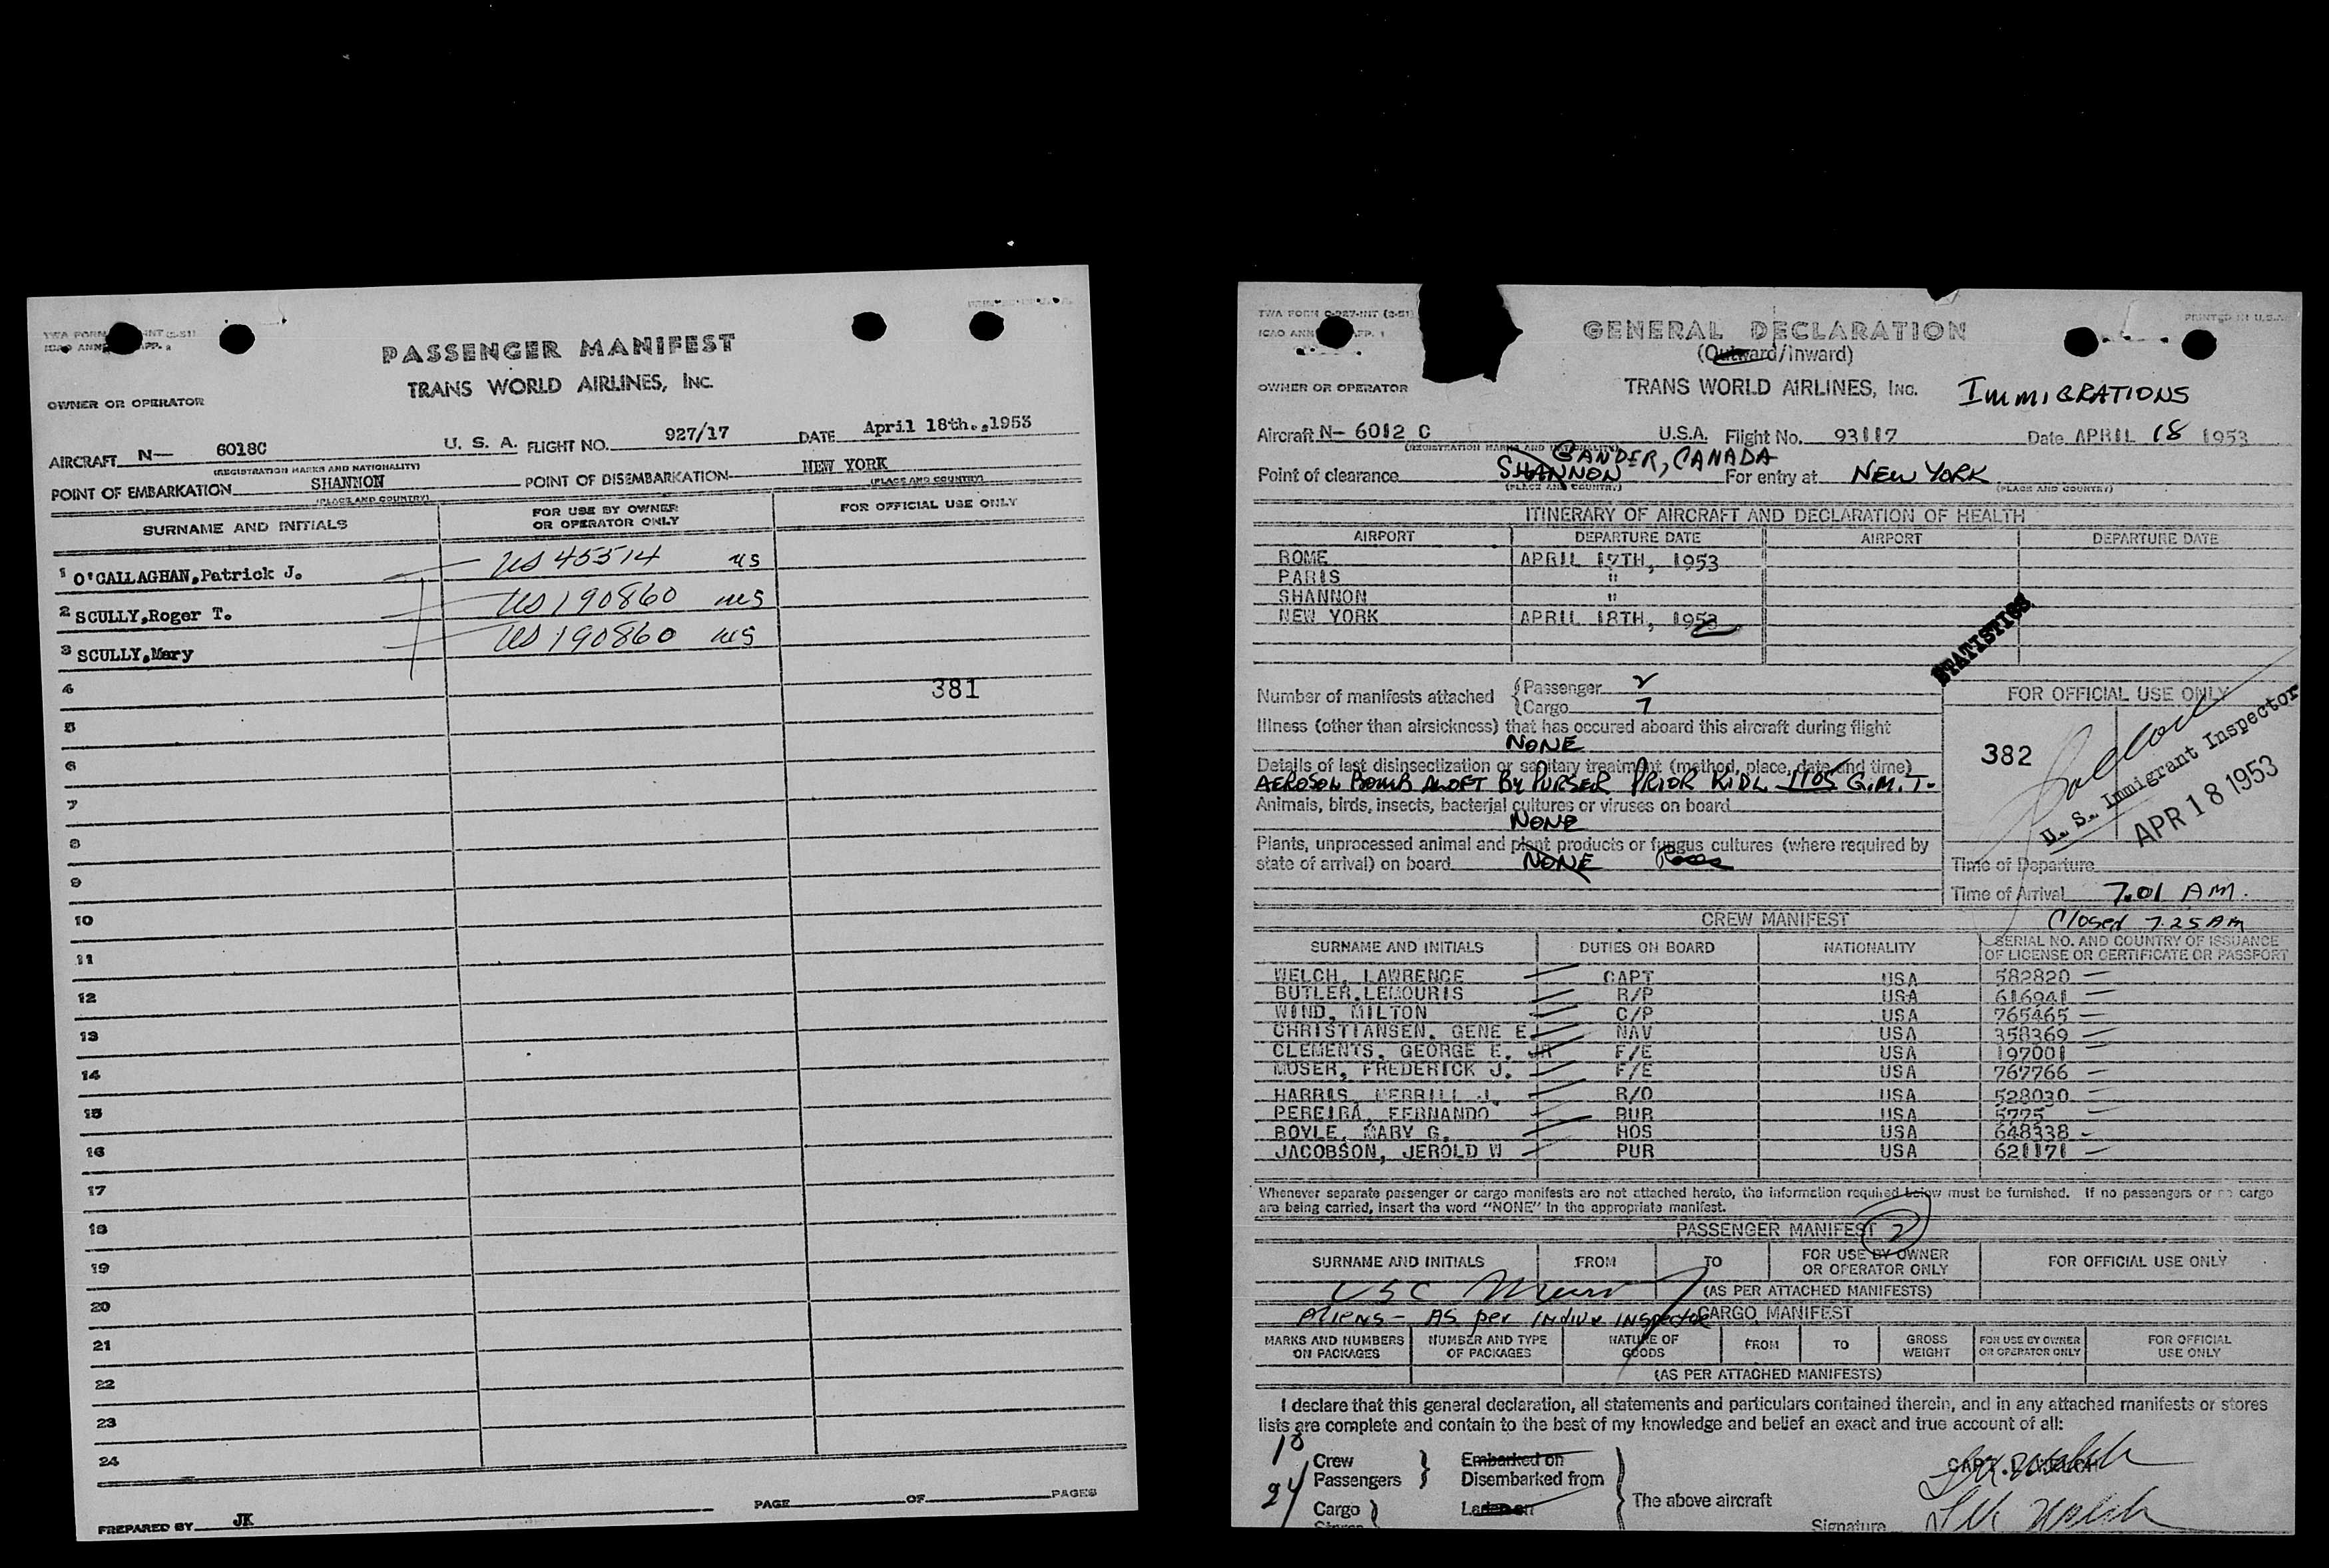 PASSENGER MANIFEST
TRANS WORLD AIRLINES, INC.
OWNER OR OPERATOR
AIRCRAFT N— 6018C U. S. A. FLIGHT NO. 927/17 DATE April 18th.,1953
(REGISTRATION MARKS AND NATIONALITY)
POINT OF EMBARKATION SHANNON POINT OF DISEMBARKATION NEW YORK
(PLACE AND COUNTRY) (PLACE AND COUNTRY)
SURNAME AND INITIALS FOR USE BY OWNER OR OPERATOR ONLY FOR OFFICIAL USE ONLY
1 O'CALLAGHAN,Patrick J. US 45514 us
2 SCULLY,Roger T. US 190860 us
3 SCULLY,Mary US 190860 us
4 381
5
6
7
8
9
10
11
12
13
14
15
16
17
18
19
20
21
22
23
24
PAGE OF PAGES
PREPARED BY JK
TWA FORM
PRINTED IN U.S.A.
GENERAL DECLARATION
(Outward/Inward)
OWNER OR OPERATOR TRANS WORLD AIRLINES, INC. IMMIGRATIONS
Aircraft N- 6012 C U.S.A. Flight No. 93117 Date APRIL 18 1953
(REGISTRATION MARKS AND NATIONALITY)
GANDER, CANADA
Point of clearance SHANNON For entry at NEW YORK
(PLACE AND COUNTRY) (PLACE AND COUNTRY)
ITINERARY OF AIRCRAFT AND DECLARATION OF HEALTH
AIRPORT DEPARTURE DATE AIRPORT DEPARTURE DATE
ROME APRIL 17TH, 1953
PARIS "
SHANNON "
NEW YORK APRIL 18TH, 1953
STATISTICS
Number of manifests attached {Passenger 2
{Cargo 7
FOR OFFICIAL USE ONLY
382
U. S. Immigrant Inspector
APR 18 1953
Illness (other than airsickness) that has occured aboard this aircraft during flight
NONE
Details of last disinsectization or sanitary treatment (method, place, date and time)
AEROSOL BOMB ALOFT BY PURSER PRIOR KIDL 1105 G.M.T.
Animals, birds, insects, bacterial cultures or viruses on board
NONE
Plants, unprocessed animal and plant products or fungus cultures (where required by
state of arrival) on board NONE
Time of Departure
Time of Arrival 7.01 AM.
Closed 7.25 AM
CREW MANIFEST
SURNAME AND INITIALS DUTIES ON BOARD NATIONALITY SERIAL NO. AND COUNTRY OF ISSUANCE OF LICENSE OR CERTIFICATE OR PASSPORT
WELCH, LAWRENCE CAPT USA 582820
BUTLER,LEMOURIS R/P USA 616941
WIND, MILTON C/P USA 765465
CHRISTIANSEN, GENE E. NAV USA 358369
CLEMENTS, GEORGE E. JR F/E USA 197001
MOSER, FREDERICK J. F/E USA 767766
HARRIS, MERRILL J. R/O USA 528030
PEREIRA, FERNANDO PUR USA 5775
BOYLE, MARY G. HOS USA 648338
JACOBSON, JEROLD W PUR USA 621171
Whenever separate passenger or cargo manifests are not attached hereto, the information required below must be furnished. If no passengers or no cargo
are being carried, insert the word "NONE" in the appropriate manifest.
PASSENGER MANIFEST 2
SURNAME AND INITIALS FROM TO FOR USE BY OWNER OR OPERATOR ONLY FOR OFFICIAL USE ONLY
USC (AS PER ATTACHED MANIFESTS)
Aliens - As per Indiv Inspector
CARGO MANIFEST
MARKS AND NUMBERS ON PACKAGES NUMBER AND TYPE OF PACKAGES NATURE OF GOODS FROM TO GROSS WEIGHT FOR USE BY OWNER OR OPERATOR ONLY FOR OFFICIAL USE ONLY
(AS PER ATTACHED MANIFESTS)
I declare that this general declaration, all statements and particulars contained therein, and in any attached manifests or stores
lists are complete and contain to the best of my knowledge and belief an exact and true account of all:
10 Crew } Embarked on
24 Passengers Disembarked from
Cargo } Laden on
The above aircraft
CAPT. L. WELCH
Signature